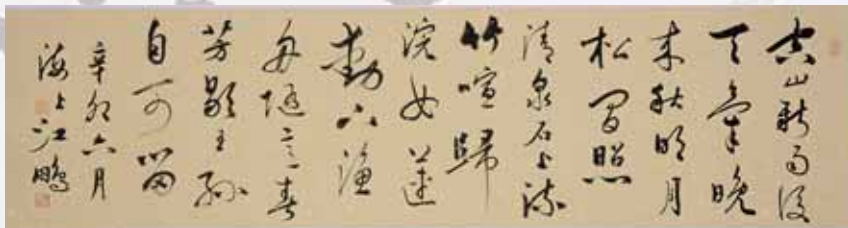 空山新雨後
天氣晚
来秋明月
松間照
清泉石上流
竹喧歸
浣女蓮
動下漁
舟随意春
芳歇王孫
自可留
辛卯六月
海上江鵬